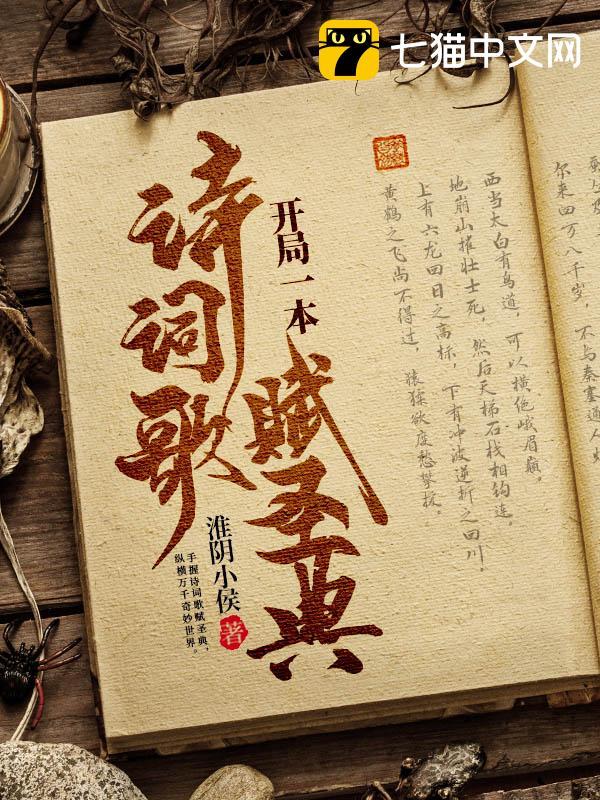 七猫中文网
开局一本
诗词歌
赋圣典
淮阴小侯 著
手握诗词歌赋圣典，
纵横万千奇妙世界。
尔来四万八千岁，不与秦塞通人
西当太白有鸟道，可以横绝峨眉巅。
地崩山摧壮士死，然后天梯石栈相钩连。
上有六龙回日之高标，下有冲波逆折之回川。
黄鹤之飞尚不得过，猿猱欲度愁攀援。